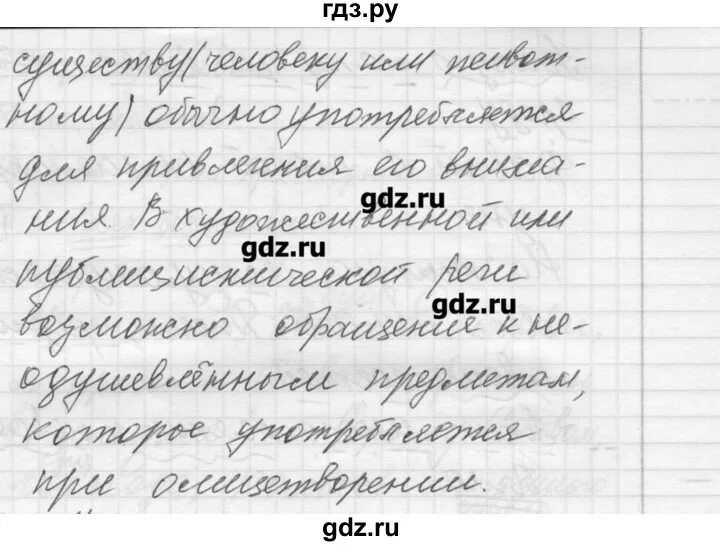 гдз.ру
существу(человеку или живот-
ному) обычно употребляется
для привлечения его внима-
gdz.ru
ния. В художественной или
gdz.ru
публицистической речи
gdz.ru
возможно обращение к не-
одушевлённым предметам,
которое употребляется
при олицетворении.
gdz.ru